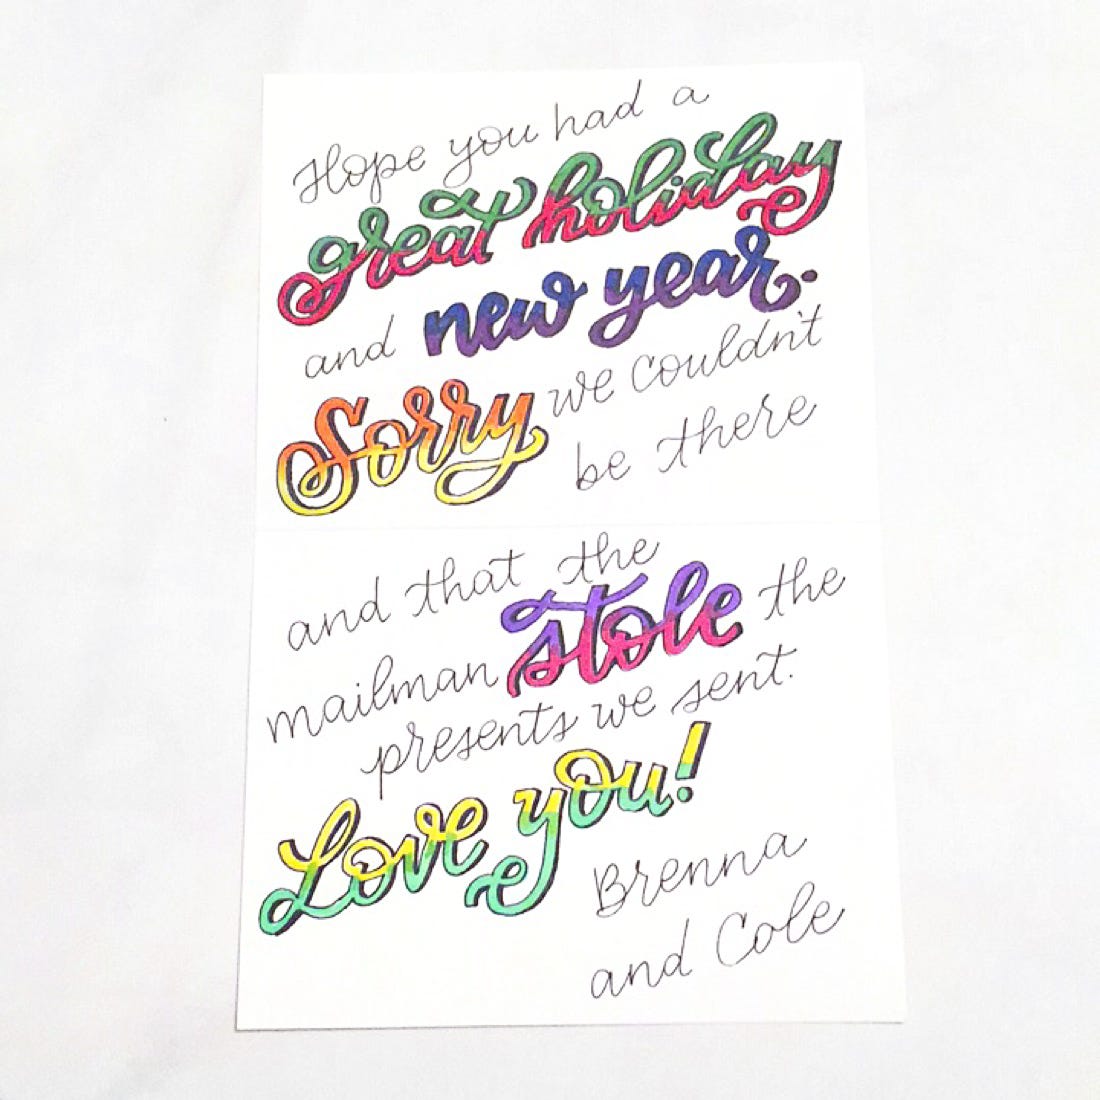 Hope you had a
great holiday
and new year.
Sorry we couldn't
be there
and that the
mailman stole the
presents we sent.
Love you!
Brenna
and Cole